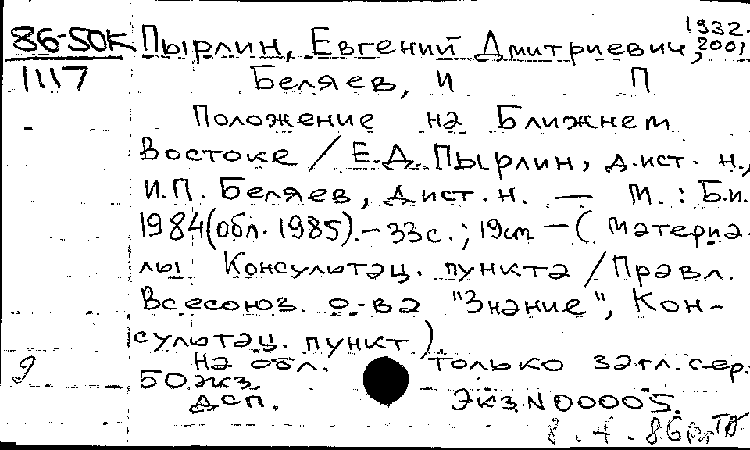 86-50К Пырлин, Евгений Дмитриевич, 1932-2001
1117 Беляев, И П
Положение на Ближнем
Востоке / Е.Д. Пырлин, д.ист. н.,
И.П. Беляев, д.ист.н. — М. : Б.и.
1984 (обл. 1985). - 33 с. ; 19 см - ( Материа-
лы Консультац. пункта / Правл.
Всесоюз. о-ва "Знание", Кон-
сультац. пункт ).
На обл. только загл. сер.
50 экз.
ДСП. Экз. N 00005.
8.4.86